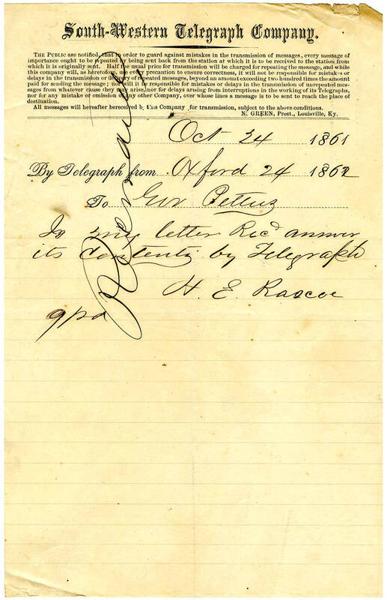 South-Western Telegraph Company.
THE PUBLIC are notified, that in order to guard against mistakes in the transmission of messages, every message of
importance ought to be repeated by being sent back from the station at which it is to be received to the station from
which it is originally sent. Half the usual price for transmission will be charged for repeating the message, and while
this company will, as heretofore, use every precaution to ensure correctness, it will not be responsible for mistakes or
delays in the transmission or delivery of repeated messages, beyond an amount exceeding two hundred times the amount
paid for sending the message; nor will it be responsible for mistakes or delays in the transmission of unrepeated messages
from whatever cause they may arise, nor for delays arising from interruptions in the working of its Telegraphs,
nor for any mistake or omission of any other Company, over whose lines a message is to be sent to reach the place of
destination.
All messages will hereafter be received by this Company for transmission, subject to the above conditions.
N. GREEN, Prest., Louisville, Ky.
Oct 24 1861
By Telegraph from Oxford 24 1862
To Gov Pettus
Is my letter Recd answer
its contents by Telegraph
H. E. Rascoe